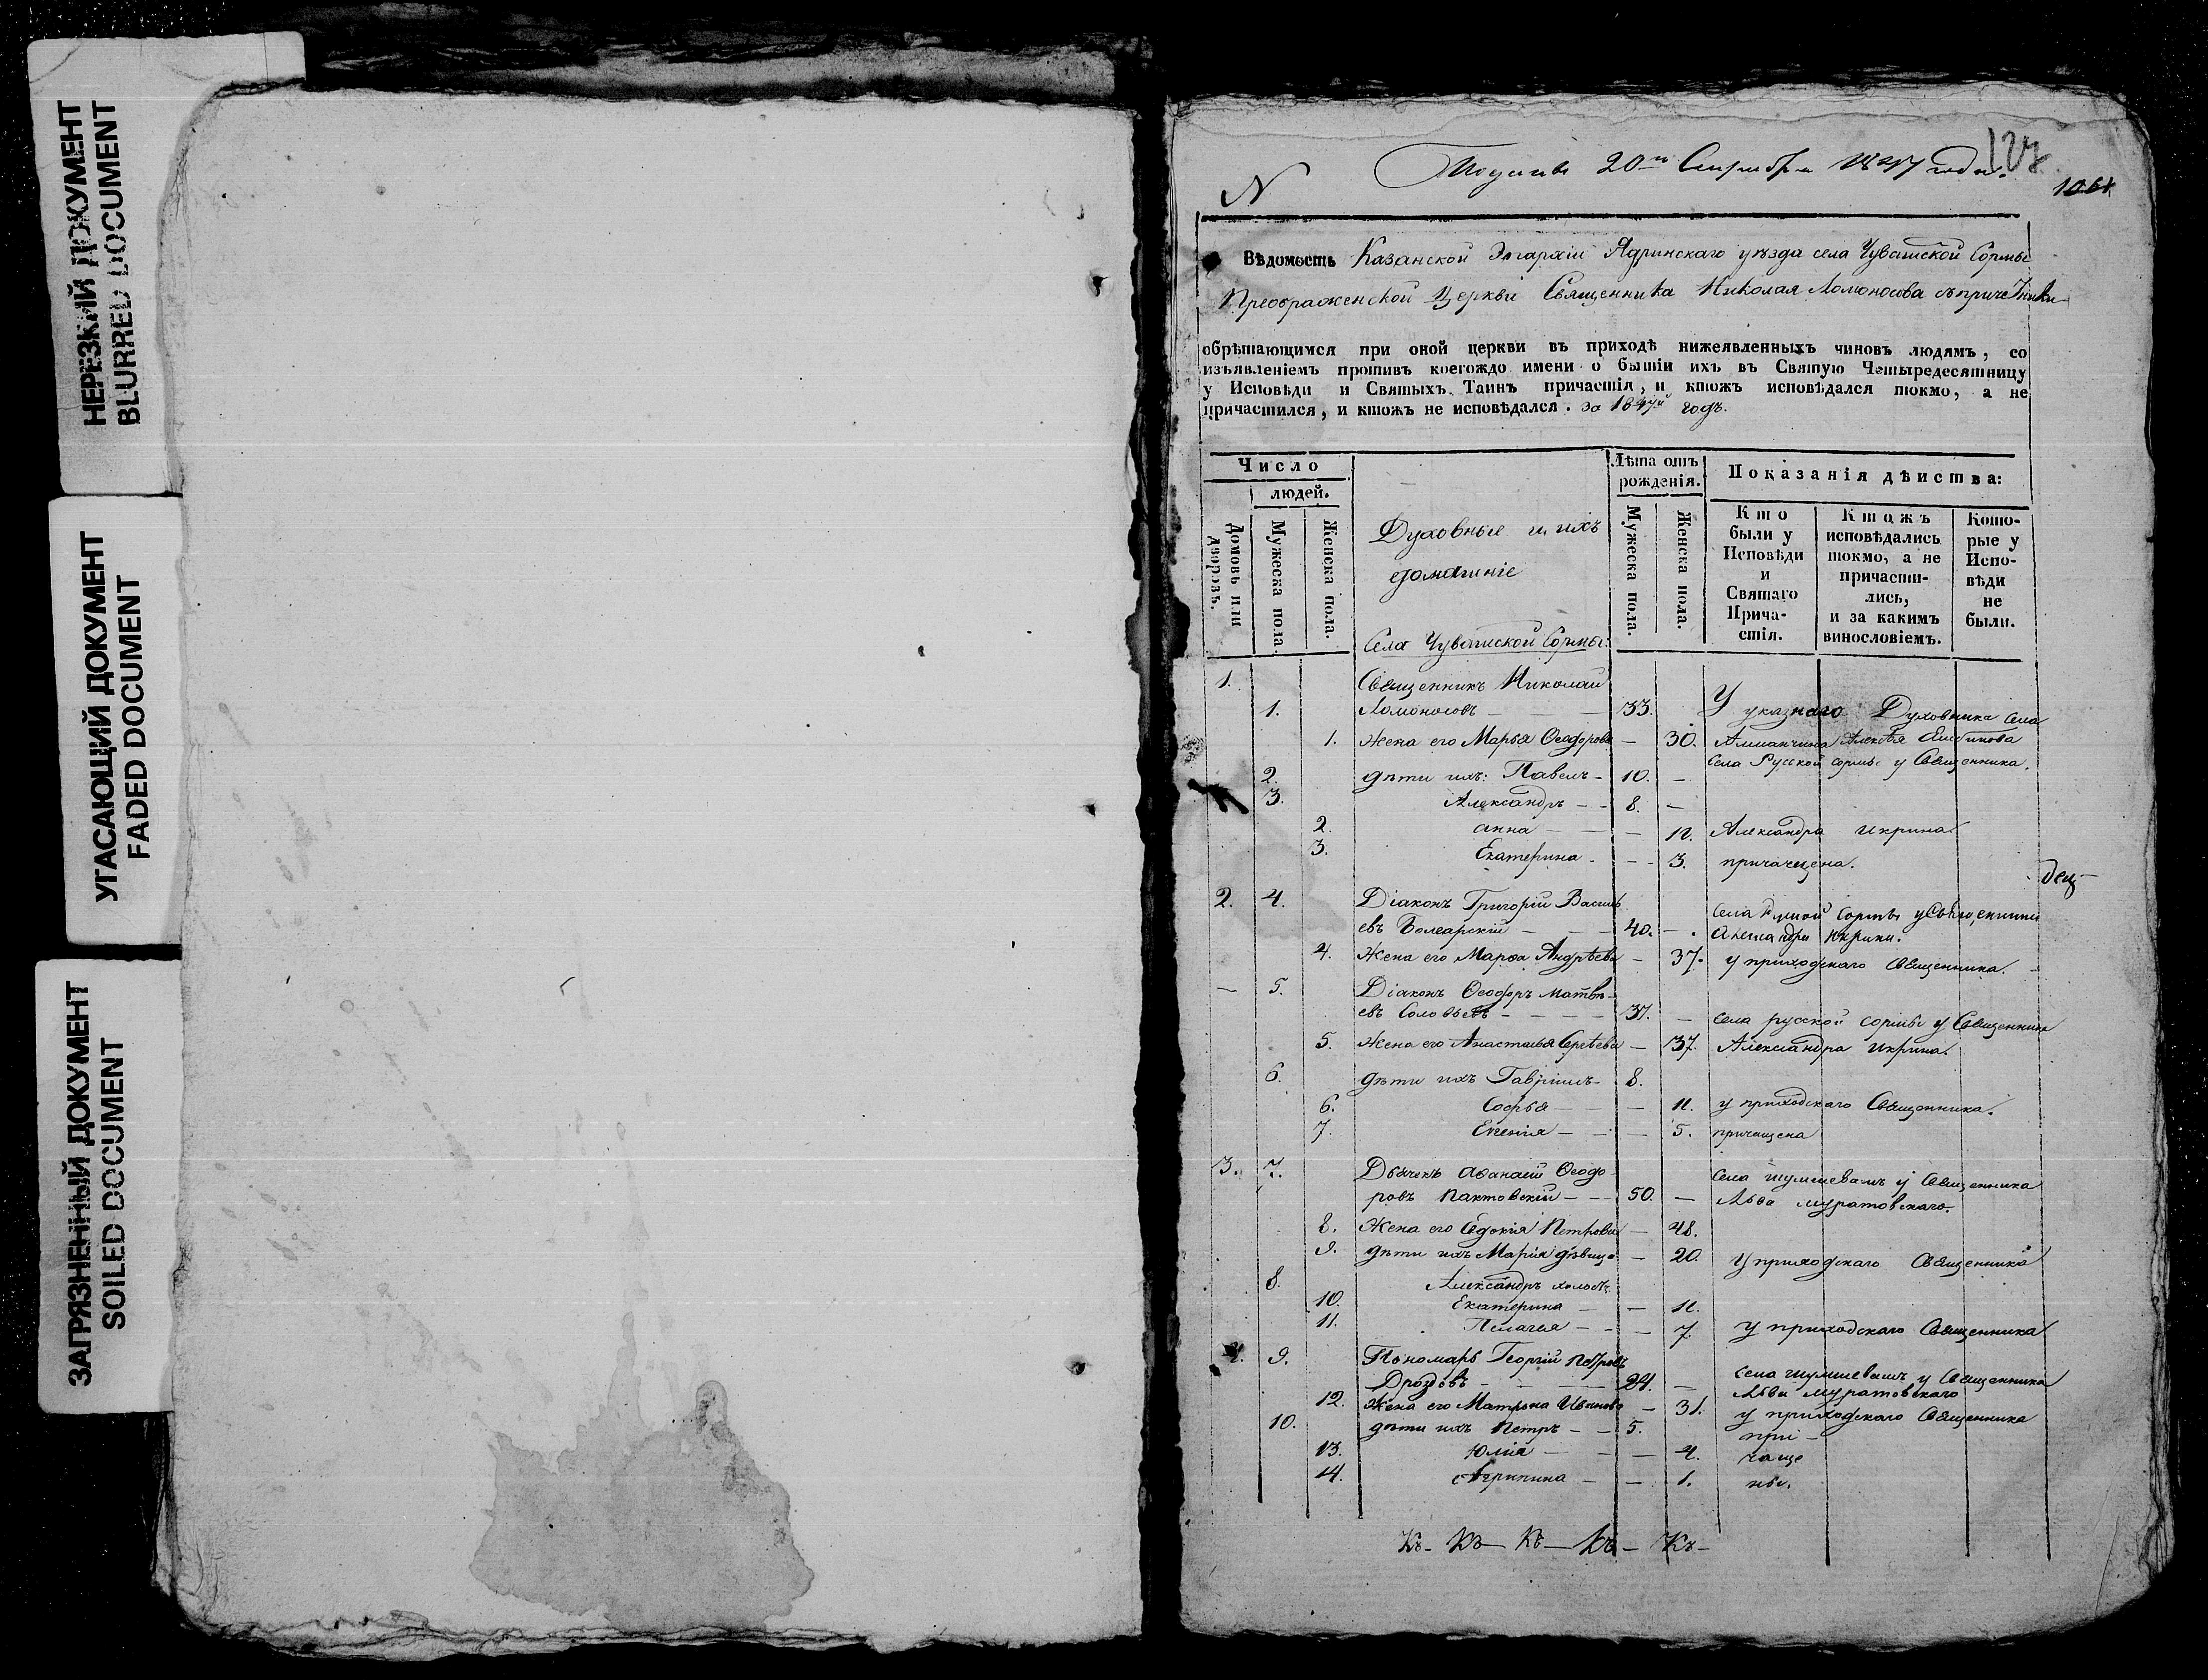 НЕРЕЗКИЙ ДОКУМЕНТ
BLURRED DOCUMENT
УГАСАЮЩИЙ ДОКУМЕНТ
FADED DOCUMENT
ЗАГРЯЗНЕННЫЙ ДОКУМЕНТ
SOILED DOCUMENT
127
N 20 1847 года.
Вѣдомость Казанской Эпархіи Ядринскаго уѣзда села Чувашской Сормы
Преображенской Церкви Священника Николая Ломоносова съ причетники
обрѣтающимся при оной церкви въ приходѣ нижеявленныхъ чиновъ людямъ, со
изъявленіемъ противъ коегождо имени о бытіи ихъ въ Святую Четыредесятницу
у Исповѣди и Святыхъ Таинъ причастія, и ктожъ исповѣдался токмо, а не
причастился, и ктожъ не исповѣдался. за 1847й годъ.
Число
людей.
Домовъ или дворовъ.
Мужеска пола.
Женска пола.
Духовные и ихъ
домашніе
Села Чувашской Сормы:
Лѣта отъ
рожденія.
Мужеска пола.
Женска пола.
Показанія дѣиства:
Кто
были у
Исповѣди
и
Святаго
Прича-
стія.
Ктожъ
исповѣдались
токмо, а не
причасти-
лись,
и за какимъ
винословіемъ.
Кото-
рые у
Испо-
вѣди
не
были.
1. Священникъ Николай
1. Ломоносовъ - 33. У указнаго Духовника села
1. Жена его Марья Ѳеодорова - 30. Алексѣя
села Русской Сормы у Священника
2. дѣти ихъ: Павелъ - 10. -
3. Александръ - 8. -
2. Анна - - Александра Икрина
3. Екатерина - - 3. причащена.
2. 4. Діаконъ Григорій Василь
евъ Болгарскій - 40. - Александра Икрина.
4. Жена его Марѳа Андрѣева - 37. у приходскаго Священника.
- 5. Діаконъ Ѳеодоръ Матвѣ-
евъ Соловьевъ - 37. - села русской сормы у Священника
5. Жена его Анастасья Сергѣева - 37. Александра Икрина.
6. дѣти ихъ Гавріилъ - 8.
6. Софья - - 11. у приходскаго Священника.
7. Евгенія - - 5. причащена
3. 7. Дьячекъ Аѳанасій Ѳеодо-
ровъ Пактовскій - 50. - Льва Муратовскаго.
села Шумшевашъ у Священника
8. Жена его Евдокія Петрова - 48.
9. дѣти ихъ Марія дѣвица - 20. У приходскаго Священника
8. Александръ холостъ
10. Екатерина - - 11.
11. Пелагья - - 7. У приходскаго Священника
4. 9. Пономарь Георгій Петровъ
Дроздовъ - 24. - села Шумшевашъ у Священника
Льва Муратовскаго
12. Жена его Матрона Иванова - 31. у приходскаго Священника
10. дѣти ихъ Петръ - 5. при-
13. Юлія - - 4. чаще
14. Агрипина - - 1. ны.